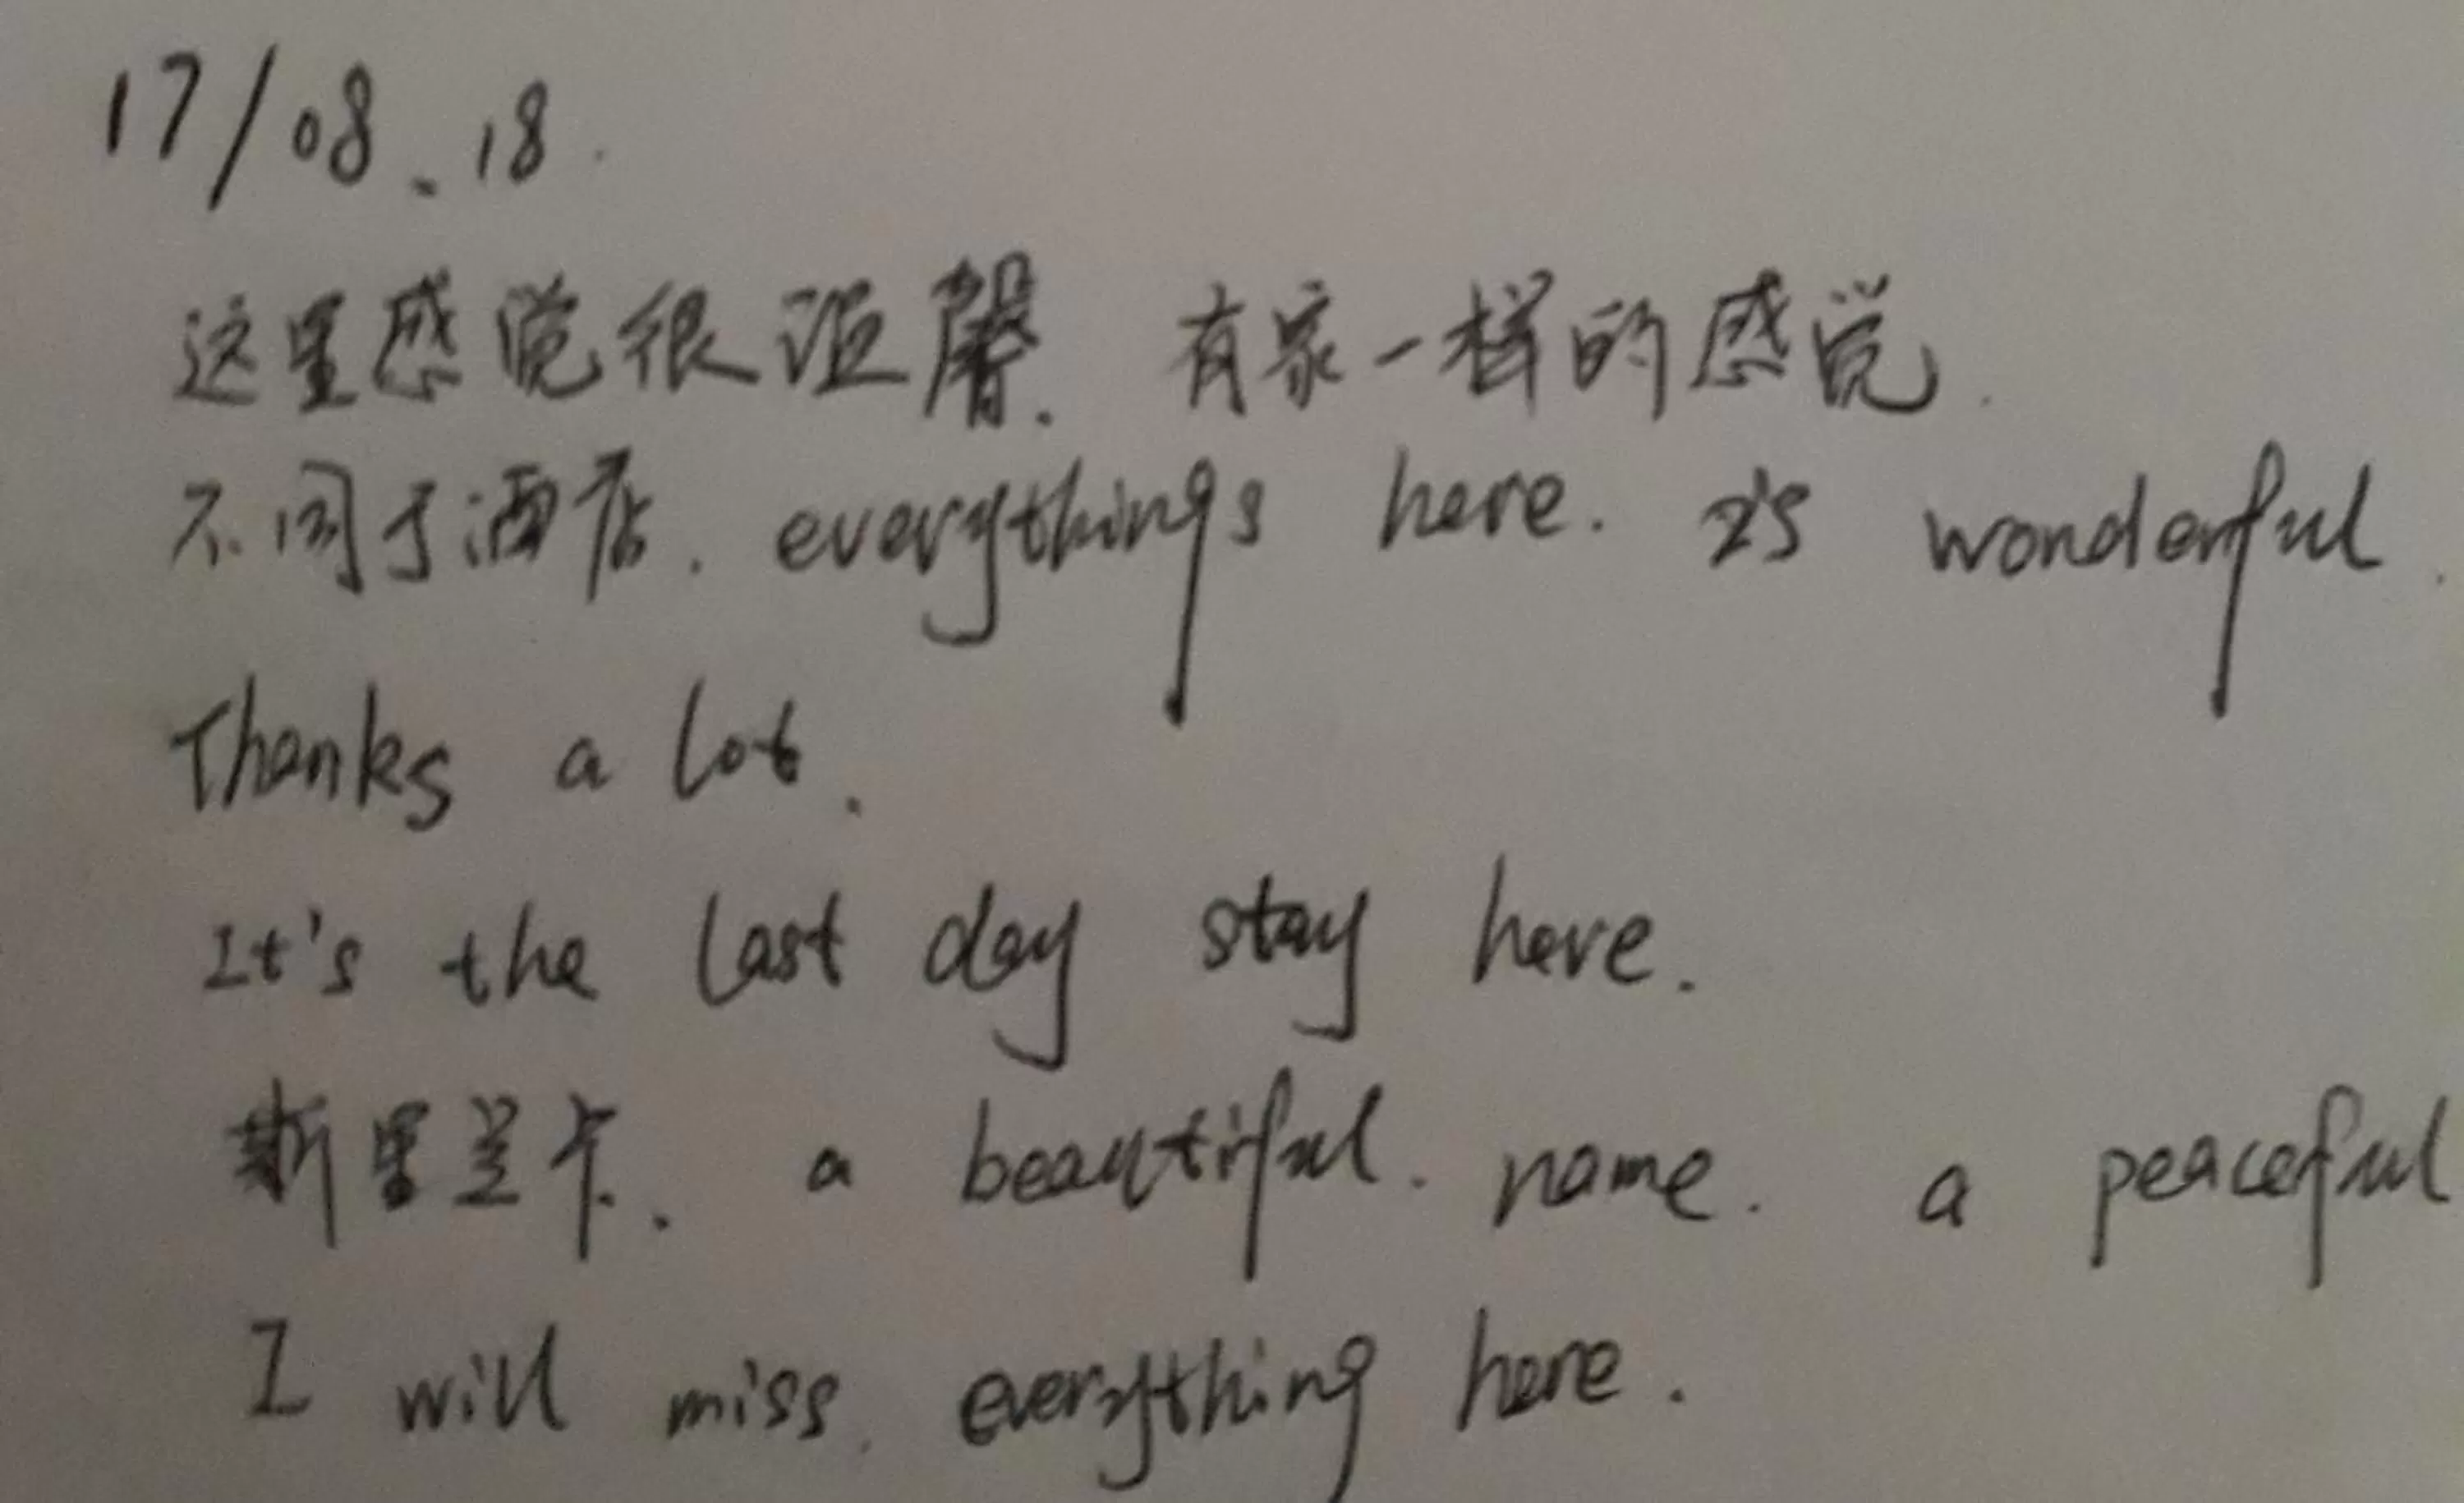 17/08.18.
这里感觉很温馨. 有家一样的感觉.
不同于酒店. everythings here. is wonderful.
Thanks a lot.
It's the last day stay here.
斯里兰卡. a beautiful. name. a peaceful
I will miss. everything here.